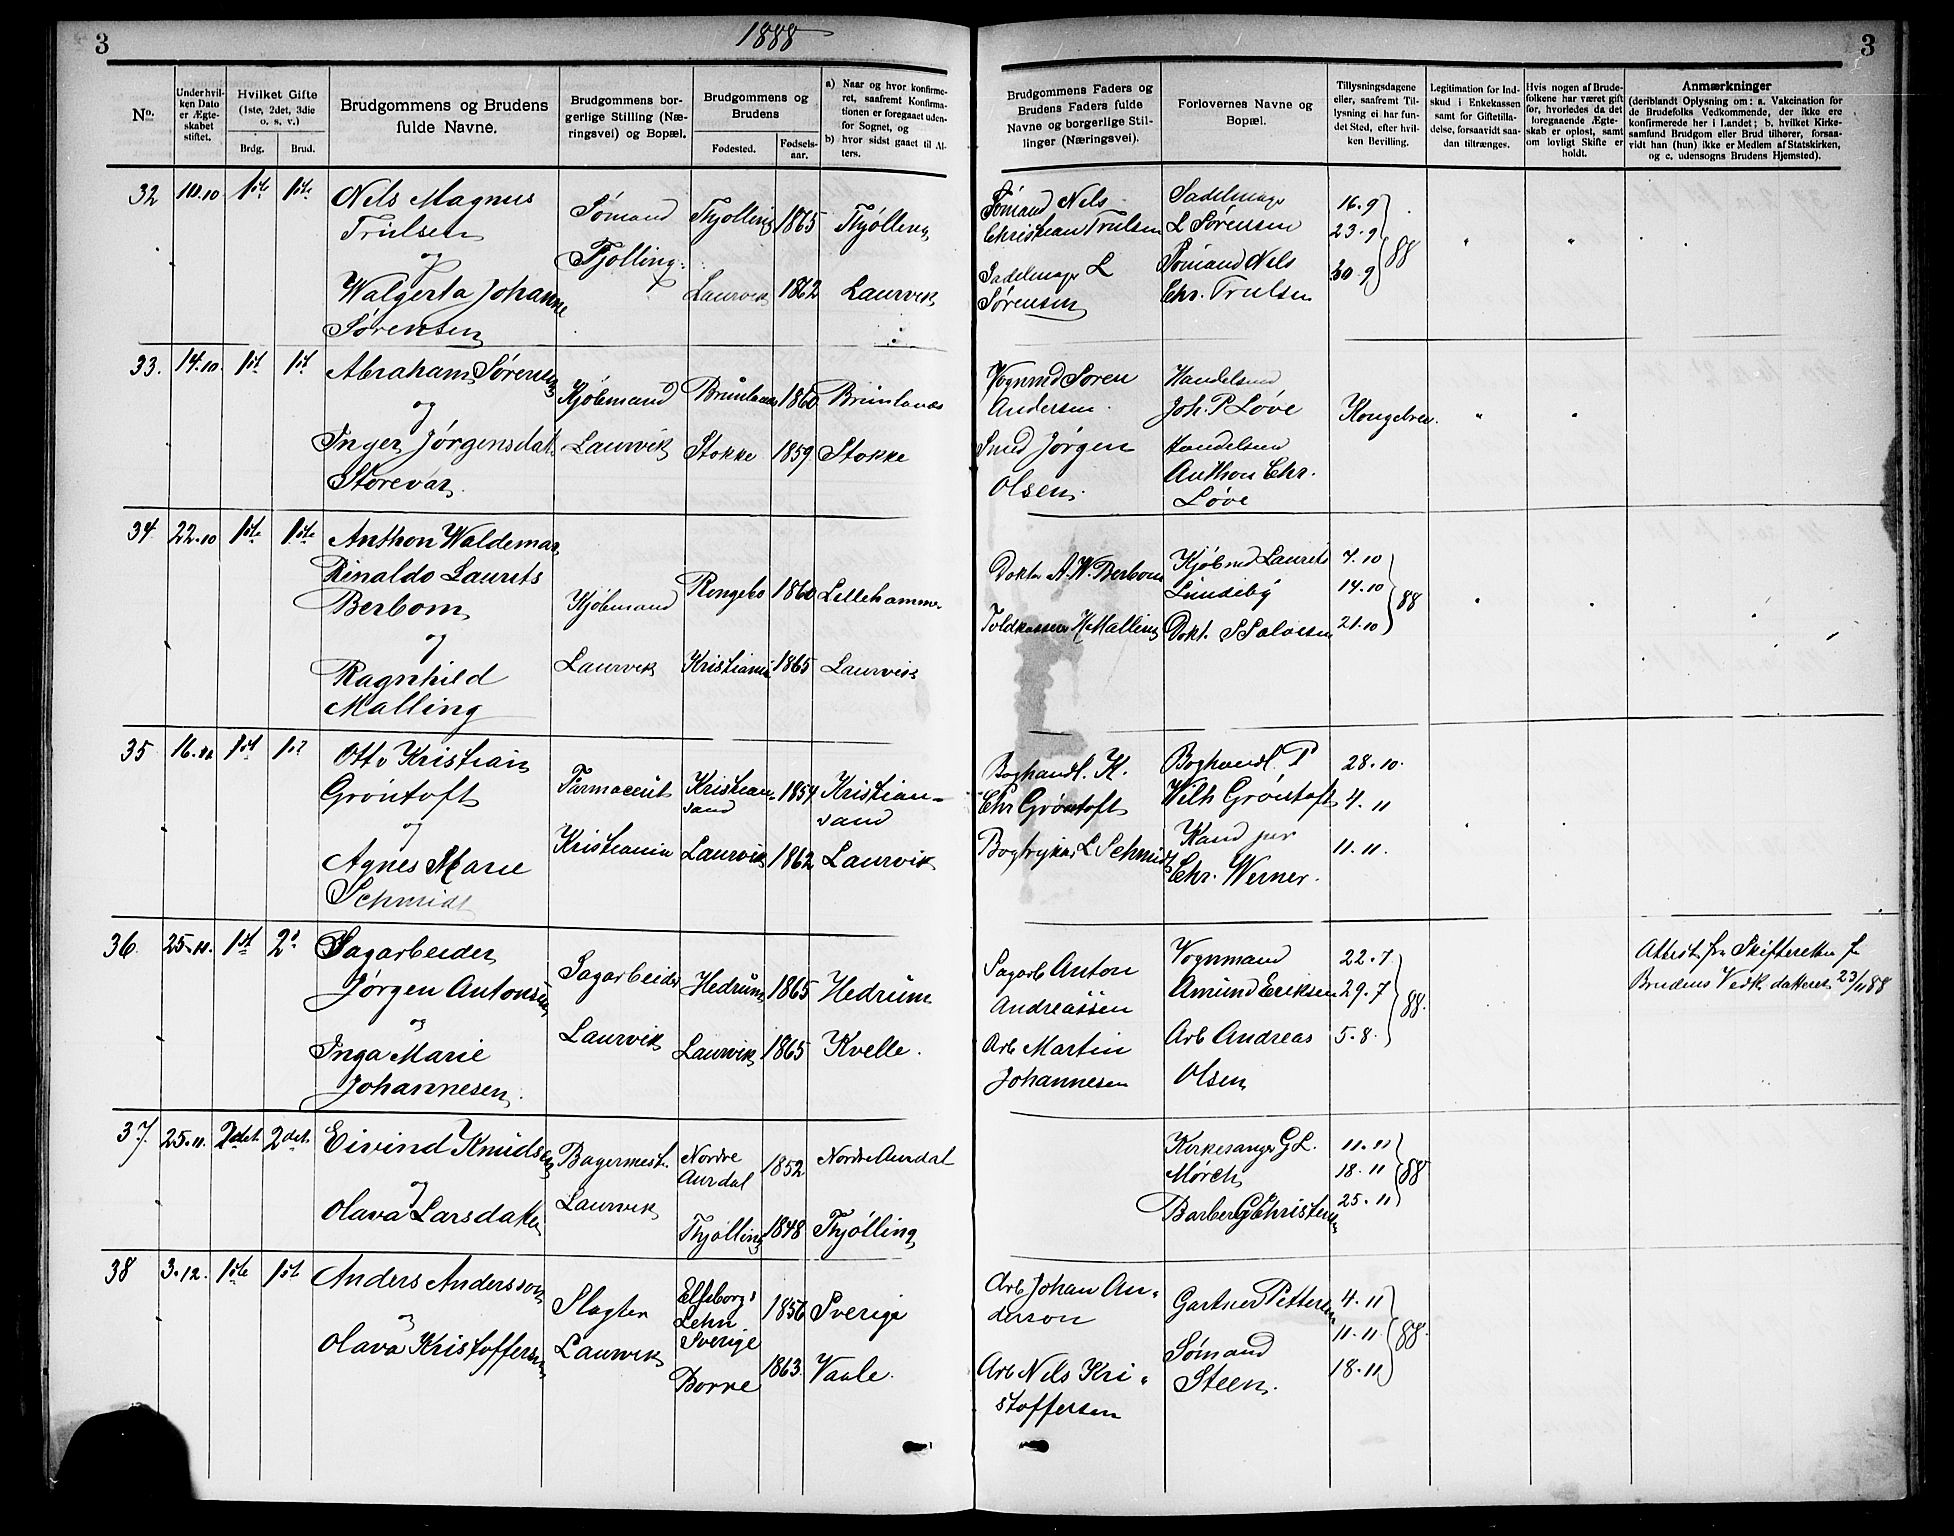 3
1888
3
No.
Under hvilken Dato er Ægteskabet stiftet.
Hvilket Gifte (1ste, 2det, 3die o. s. v.)
Brdg.
Brud.
Brudgommens og Brudens fulde Navne.
Brudgommens borgerlige Stilling (Næringsvei) og Bopæl.
Brudgommens og Brudens
Fødested.
Fødselsaar.
a) Naar og hvor konfirmeret, saafremt Konfirmationen er foregaaet udenfor Sognet, og
b) hvor sidst gaaet til Alters.
Brudgommens Faders og Brudens Faders fulde Navne og borgerlige Stillinger (Næringsvei).
Forlovernes Navne og Bopæl.
Tillysningsdagene eller, saafremt Tillysning ei har fundet Sted, efter hvilken Bevilling.
Legitimation for Indskud i Enkekassen samt for Giftetilladelse, forsaavidt saadan tiltrænges.
Hvis nogen af Brudefolkene har været gift, hvorledes da det foregaaende Ægteskab er opløst, samt om lovligt Skifte er holdt.
Anmærkninger
(deriblandt Oplysning om: a. Vakcination for de Brudefolks Vedkommende, der ikke ere konfirmerede her i Landet; b. hvilket Kirkesamfund Brudgom eller Brud tilhører, forsaavidt han (hun) ikke er Medlem af Statskirken, og c. udensogns Brudens Hjemsted).
32 10.10 1ste 1ste Nels Magnus
Trulsen
og
Walgerta Johanne
Sørensen
Sømand
Tjølling
Thjølling 1865 Thjølling
Laurvik 1862 Laurvik
Sømand Nels
Christian Trulsen
Sadelmager L
Sørensen
Sadelmager
L Sørensen
Sømand Nels
Chr. Trulsen
16.9
23.9
30.9
88
33. 14.10. 1st 1st Abraham Sørensen
og
Inger Jørgensdat.
Storevar
Kjøbmand
Laurvik
Brunlanes 1860 Brunlanes
Stokke 1859 Stokke
Vognmd Soren
Andersen.
Smed Jørgen
Olsen.
Handelsmd
Joh. P Løve
Handelsmd
Anthon Chr.
Løve
Kongebrev.
34 22.10 1ste 1ste Anthon Waldemar
Rinaldo Laurits
Berbom
og
Ragnhild
Malling
Kjøbmand
Laurvik
Rengebo 1860 Lillehammer
Kristiania 1865 Laurvik
Doktor A.W. Berbom
Toldkasserer H Malling
Kjøbmd Laurits
Lundeby
Dokt. S Salvesen
7.10
14.10
21.10
88
35 16.12 1st 1st Otto Kristian
Grøntoft
og
Agnes Marie
Schmidt
Farmaceut
Kristiania
Kristiansand 1854 Kristiansand
Laurvik 1862 Laurvik
Boghandl. K.
Chr Grøntoft
Bogtrykker L Schmidt
Boghandl. P
Wilh Grøntoft
Kand jur
Chr. Werner.
28.10.
4.11
11.11.
36. 25.11. 1st 2d Sagarbeider
Jørgen Antonsen
og
Inga Marie
Johannesen.
Sagarbeider
Laurvik
Hedrum 1865 Hedrum
Laurvik 1865 Kvelle.
Sagarb Anton
Andreassen
Arb Martin
Johannesen
Vognmand
Amund Eriksen
Arb Andreas
Olsen
22.7
29.7
5.8.
88.
Attest fra Skifteretten f
Brudens Vedk. datteret 23/11 88
37. 25.11. 2det 2det. Eivind Knudsen
og
Olava Larsdatter
Bagermest.
Laurvik
Nordre
Aurdal 1852 Nordre Aurdal
Thjølling 1848 Thjølling
Kirkesanger G L.
Mørch
Barber G Christensen
11.11
18.11
25.11
88
38 3.12. 1ste 1st Anders Andersson
og
Olava Kristoffersen
Slagter
Laurvik
Elfsborgs
Lehn
Sverige 1856 Sverige
Borre 1863. Vaale.
Arb Johan An-
derson
Arb Nels Kri-
stoffersen
Gartner Pettersen
Sømand
Steen.
4.11
11.11
18.11
88.